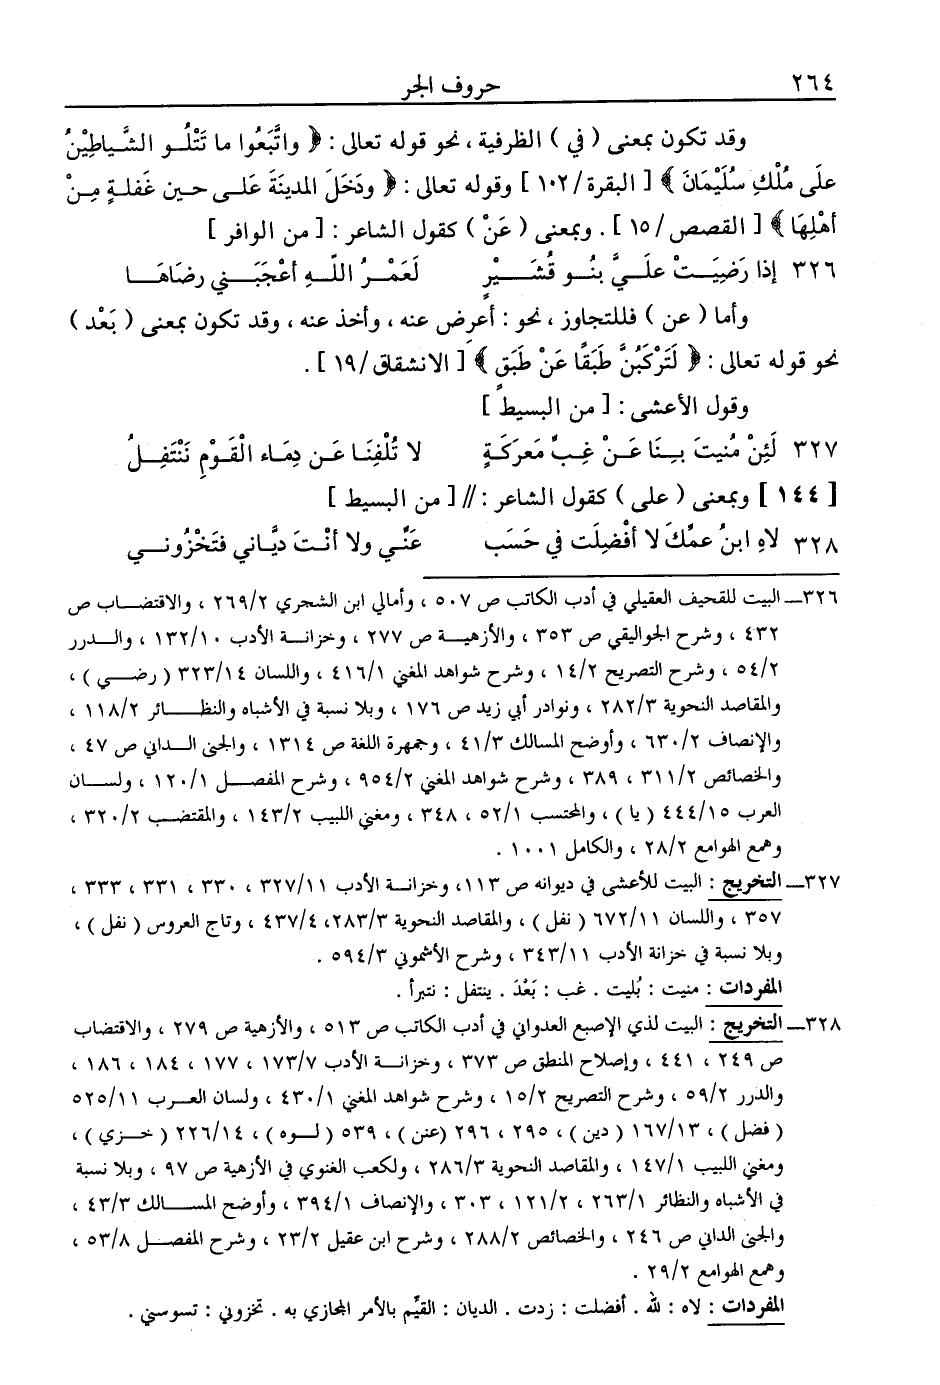 ٢٦٤ حروف الجر
وقد تكون بمعنى ( في ) الظرفية ، نحو قوله تعالى : ﴿ واتَّبَعُوا ما تَتْلُو الشَّياطِيْنُ
عَلى مُلْكِ سُلَيْمَانَ ﴾ [ البقرة / ١٠٢ ] وقوله تعالى : ﴿ ودَخَلَ المدينَةَ عَلى حين غَفلةٍ مِنْ
أهْلِهَا ﴾ [ القصص / ١٥ ] . وبمعنى ( عَنْ ) كقول الشاعر : [ من الوافر ]
٣٢٦ إذا رَضِيَتْ عليَّ بنُو قُشَيْرٍ لَعَمْرُ اللّهِ أعْجَبَني رضَاهَا
وأما ( عن ) فللتجاوز ، نحو : أعرِض عنه ، وأخذ عنه ، وقد تكون بمعنى ( بَعْد )
نحو قوله تعالى : ﴿ لَتَرْكَبُنَّ طَبَقًا عَنْ طَبَقٍ ﴾ [ الانشقاق / ١٩ ] .
وقول الأعشى : [ من البسيط ]
٣٢٧ لَئِنْ مُنيتَ بِنَا عَنْ غِبِّ مَعرَكَةٍ لا تُلْفِنَا عَن دِمَاء الْقَوْمِ نَنْتَفِلُ
[ ١٤٤ ] وبمعنى ( على ) كقول الشاعر : // [ من البسيط ]
٣٢٨ لاهِ ابنُ عمِّكَ لا أفْضِلتَ في حَسَب عَنِّي ولا أنْتَ ديَّاني فتَخْزُوني
٣٢٦ــ البيت للقحيف العقيلي في أدب الكاتب ص ٥٠٧ ، وأمالي ابن الشجري ٢٦٩/٢ ، والاقتضاب ص
٤٣٢ ، وشرح الجواليقي ص ٣٥٣ ، والأزهية ص ٢٧٧ ، وخزانة الأدب ١٣٢/١٠ ، والدرر
٥٤/٢ ، وشرح التصريح ١٤/٢ ، وشرح شواهد المغني ٤١٦/١ ، واللسان ٣٢٣/١٤ ( رضي ) ،
والمقاصد النحوية ٢٨٢/٣ ، ونوادر أبي زيد ص ١٧٦ ، وبلا نسبة في الأشباه والنظائر ١١٨/٢ ،
والإنصاف ٦٣٠/٢ ، وأوضح المسالك ٤١/٣ ، وجمهرة اللغة ص ١٣١٤ ، والجنى الداني ص ٤٧ ،
والخصائص ٣١١/٢ ، ٣٨٩ ، وشرح شواهد المغني ٩٥٤/٢ ، وشرح المفصل ١٢٠/١ ، ولسان
العرب ٤٤٤/١٥ ( يا ) ، والمحتسب ٥٢/١ ، ٣٤٨ ، ومغني اللبيب ١٤٣/٢ ، والمقتضب ٣٢٠/٢ ،
وهمع الهوامع ٢٨/٢ ، والكامل ١٠٠١ .
٣٢٧ــ التخريج : البيت للأعشى في ديوانه ص ١١٣، وخزانة الأدب ٣٢٧/١١ ، ٣٣٠ ، ٣٣١ ، ٣٣٣ ،
٣٥٧ ، واللسان ٦٧٢/١١ ( نفل ) ، والمقاصد النحوية ٢٨٣/٣، ٤٣٧/٤ ، وتاج العروس ( نفل ) ،
وبلا نسبة في خزانة الأدب ٣٤٣/١١ ، وشرح الأشموني ٥٩٤/٣ .
المفردات : منيت : بُليت . غب : بَعْدَ . ينتفل : نتبرأ .
٣٢٨ــ التخريج : البيت لذي الإصبع العدواني في أدب الكاتب ص ٥١٣ ، والأزهية ص ٢٧٩ ، والاقتضاب
ص ٢٤٩ ، ٤٤١ ، وإصلاح المنطق ص ٣٧٣ ، وخزانة الأدب ١٧٣/٧ ، ١٧٧ ، ١٨٤ ، ١٨٦ ،
والدرر ٥٩/٢ ، وشرح التصريح ١٥/٢ ، وشرح شواهد المغني ٤٣٠/١ ، ولسان العرب ٥٢٥/١١
( فضل ) ، ١٦٧/١٣ ( دين ) ، ٢٩٥ ، ٢٩٦ (عنن) ، ٥٣٩ ( لوه ) ، ٢٢٦/١٤ ( خزي ) ،
ومغني اللبيب ١٤٧/١ ، والمقاصد النحوية ٢٨٦/٣ ، ولكعب الغنوي في الأزهية ص ٩٧ ، وبلا نسبة
في الأشباه والنظائر ٢٦٣/١ ، ١٢١/٢ ، ٣٠٣ ، والإنصاف ٣٩٤/١ ، وأوضح المسالك ٤٣/٣ ،
والجنى الداني ص ٢٤٦ ، والخصائص ٢٨٨/٢ ، وشرح ابن عقيل ٢٣/٢ ، وشرح المفصل ٥٣/٨ ،
وهمع الهوامع ٢٩/٢ .
المفردات : لاه : لله . أفضلت : زدت . الديان : القيِّم بالأمر المجازي به . تخزوني : تسوسني .